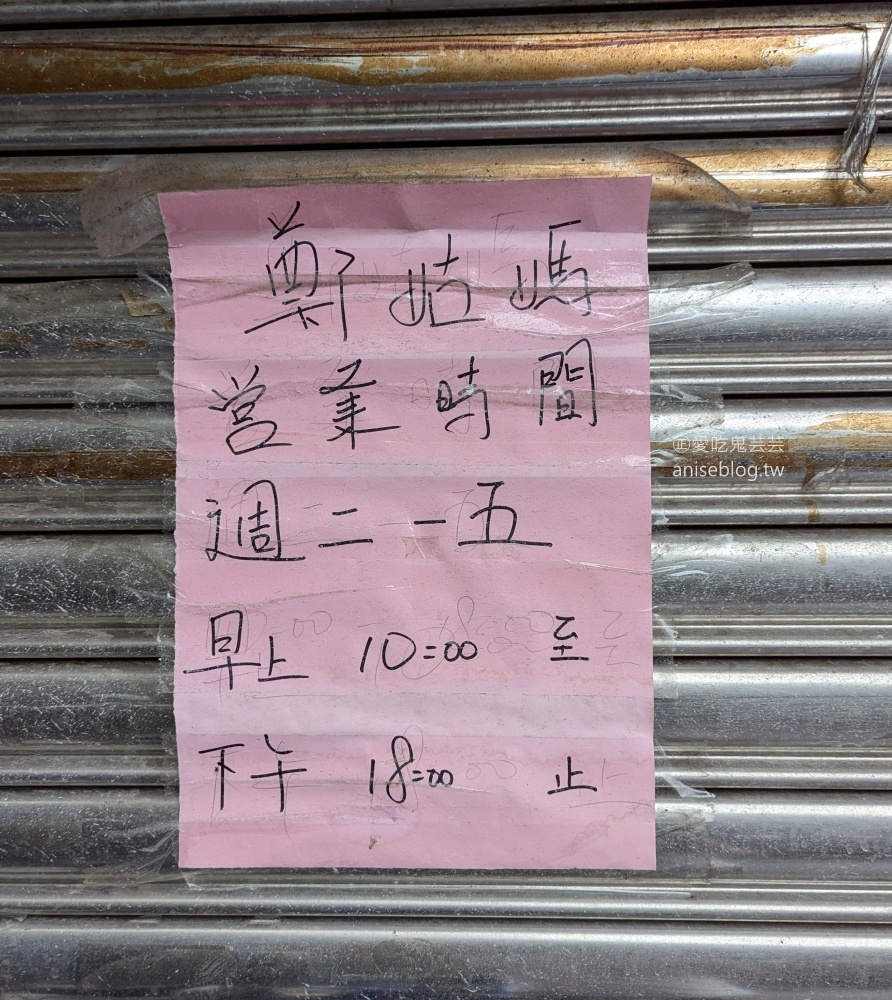 鄭姑媽
営業時間
週二一五
早上 10:00 至
下午 18:00 止
正愛吃鬼芸芸
aniseblog.tw